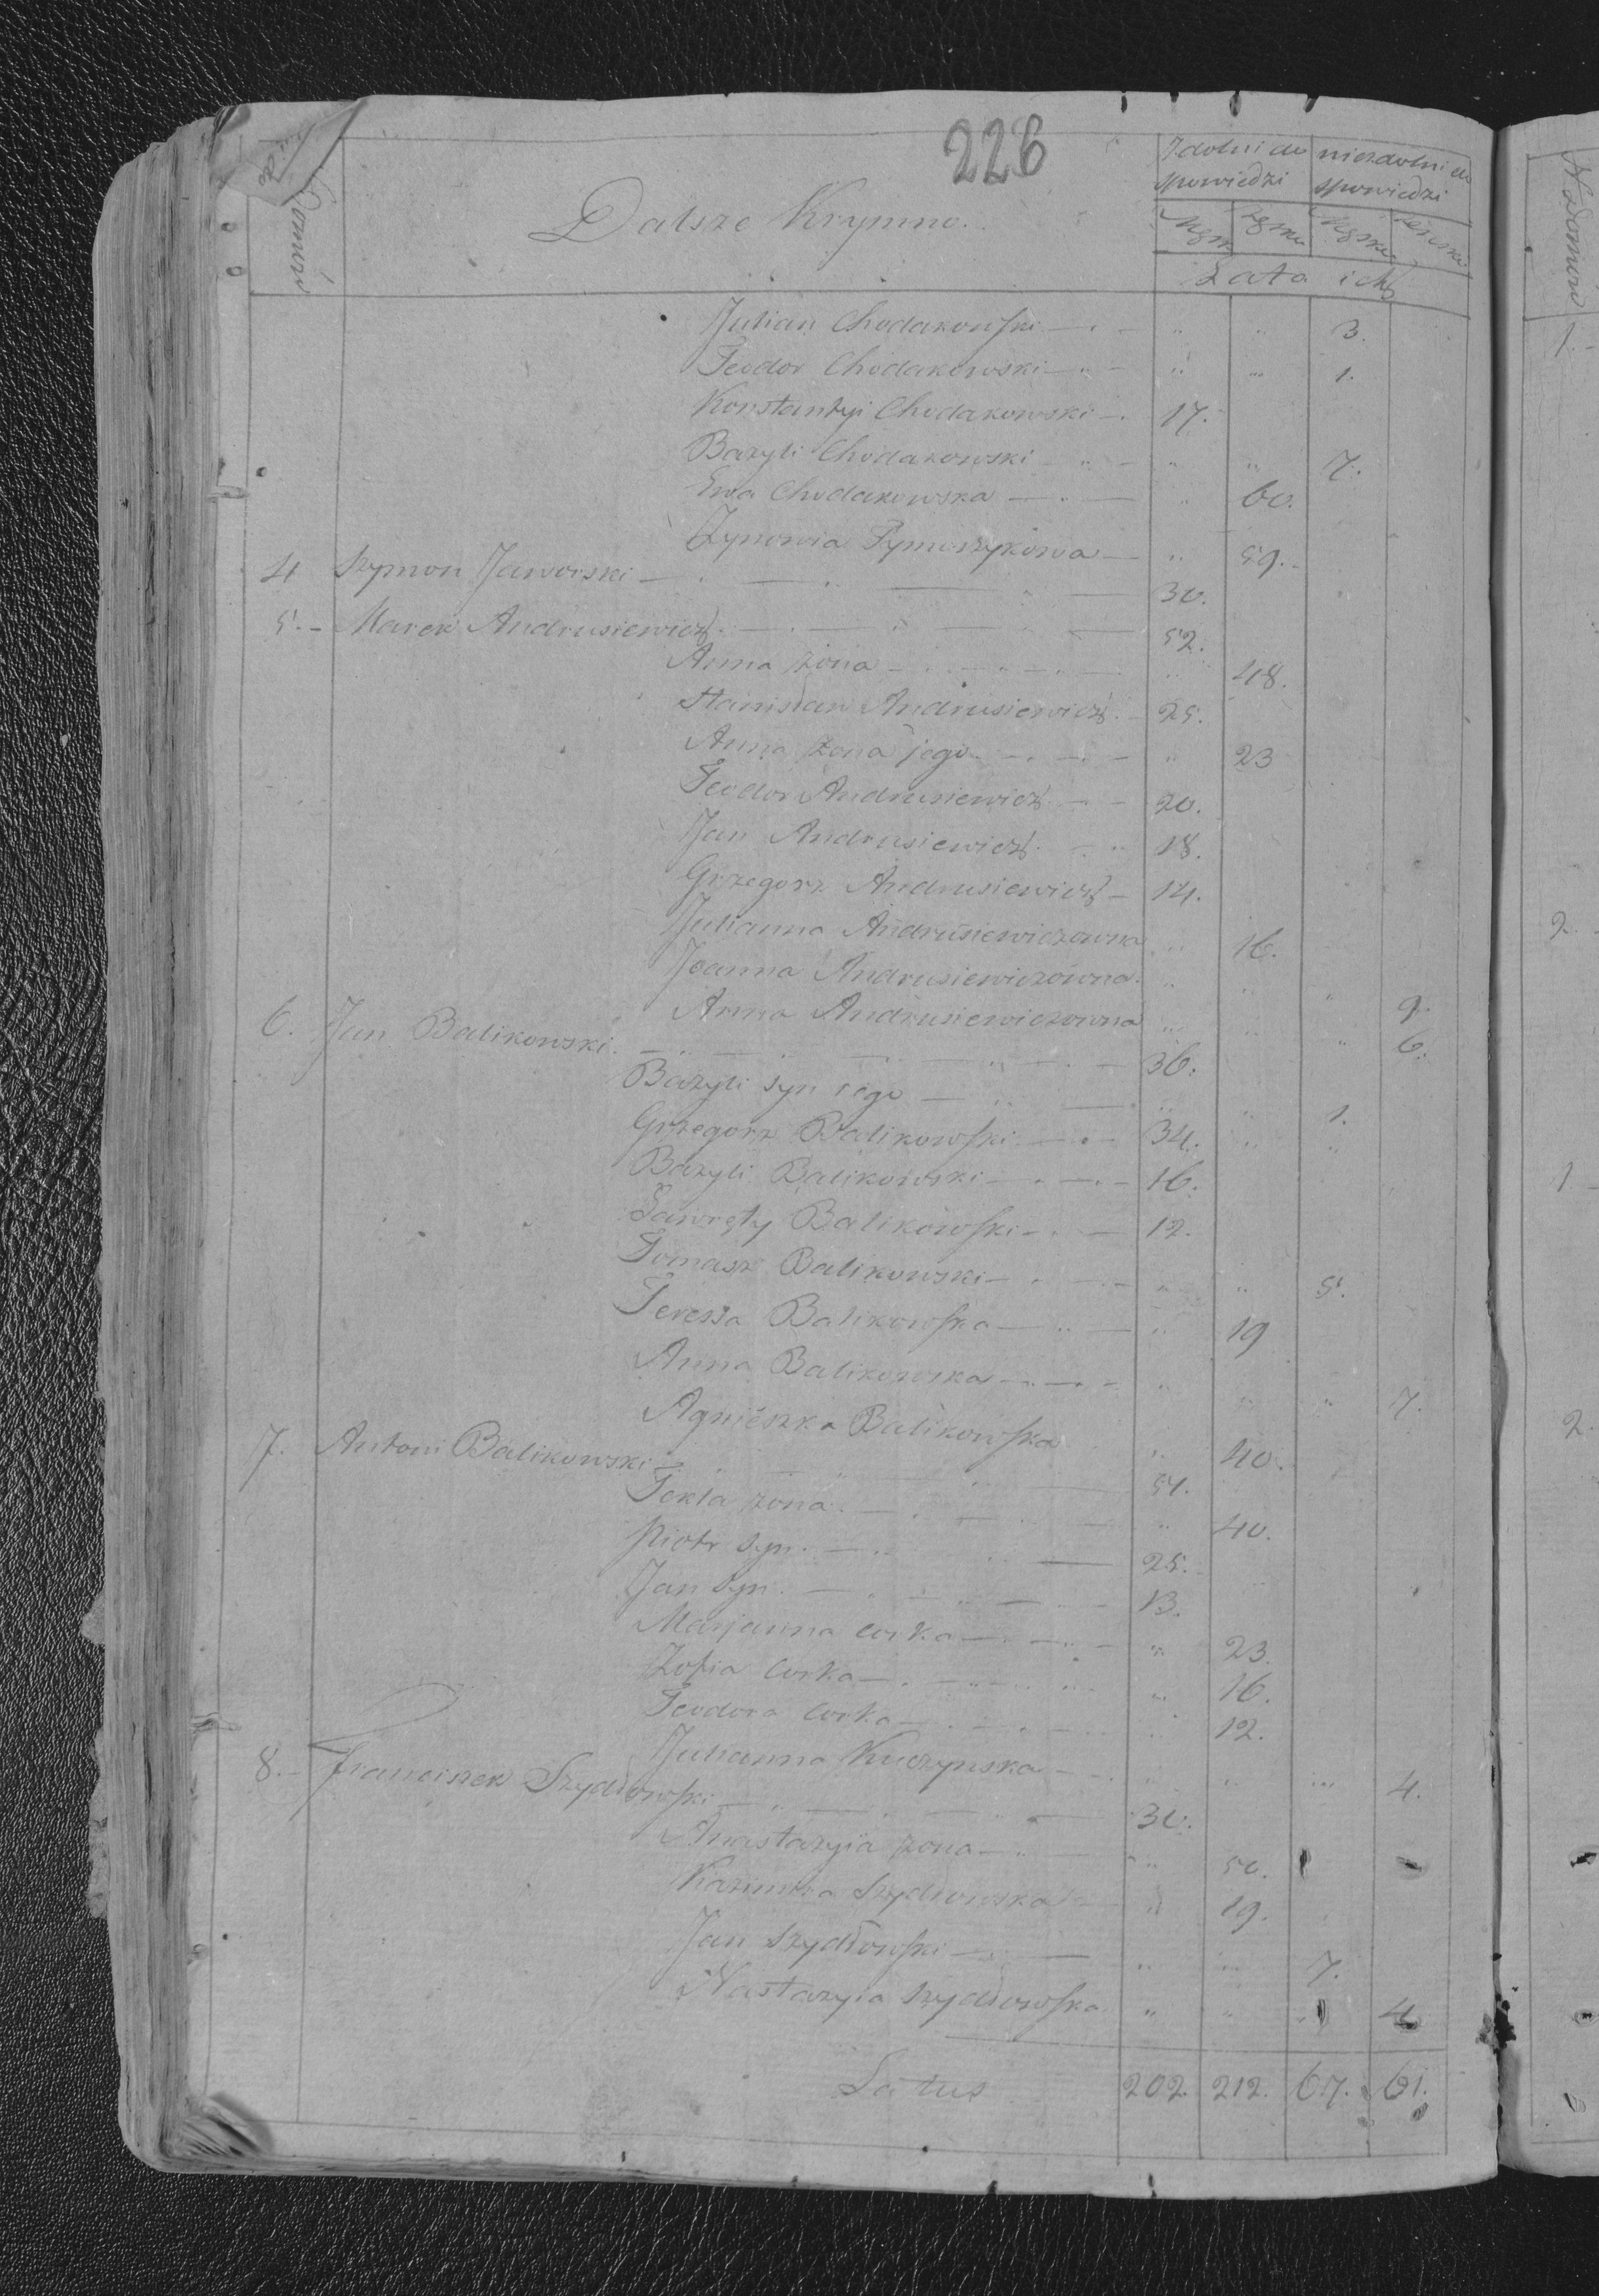 226
Domów
Dalsze Krymno.
Zdolni do spowiedzi
niezdolni do spowiedzi
Lata ich
Julian Chodakowski " " 3.
Teodor Chodakowski " " 1.
Konstantyi Chodakowski 17.
Bazyli Chodakowski " " 7.
Ewa Chodakowska " 60.
Zynowia Tymoszykowa " 59.
4 Szymon Jaworski 30.
5. Marek Andrusiewicz 52.
Anna żona " 48.
Stanisław Andrusiewicz 25.
Anna żona jego " 23
Teodor Andrusiewicz 20.
Jan Andrusiewicz 18.
Grzegorz Andrusiewicz 14.
Julianna Andrusiewiczowna " 16.
Joanna Andrusiewiczowna " " " 9.
Anna Andrusiewiczowna " " " 6.
6. Jan Balikowski 36.
Bazyli syn iego " " 1.
Grzegorz Balikowski 34. " "
Bazyli Balikowski 16.
Ławręty Balikowski 12.
Tomasz Balikowski " " 5.
Teressa Balikowska " 19
Anna Balikowska " " " 7.
Agnieszka Balikowska " 40.
7. Antoni Balikowski 51.
Tekla żona " 40.
Piotr syn 25.
Jan Syn 13.
Marjanna corka " 23.
Zofia Corka " 16.
Teodora Corka " 12.
Julianna Kuczynska " " " 4.
8. Franciszek Szydłowski 30.
Anastazyia żona " 50.
Kazimira Szydłowska " 19.
Jan Szydłowski " " 7.
Nastazyia Szydłowska " " " 4.
Latus 202. 212. 67. 61.
N Domow
1.
2.
1
2.